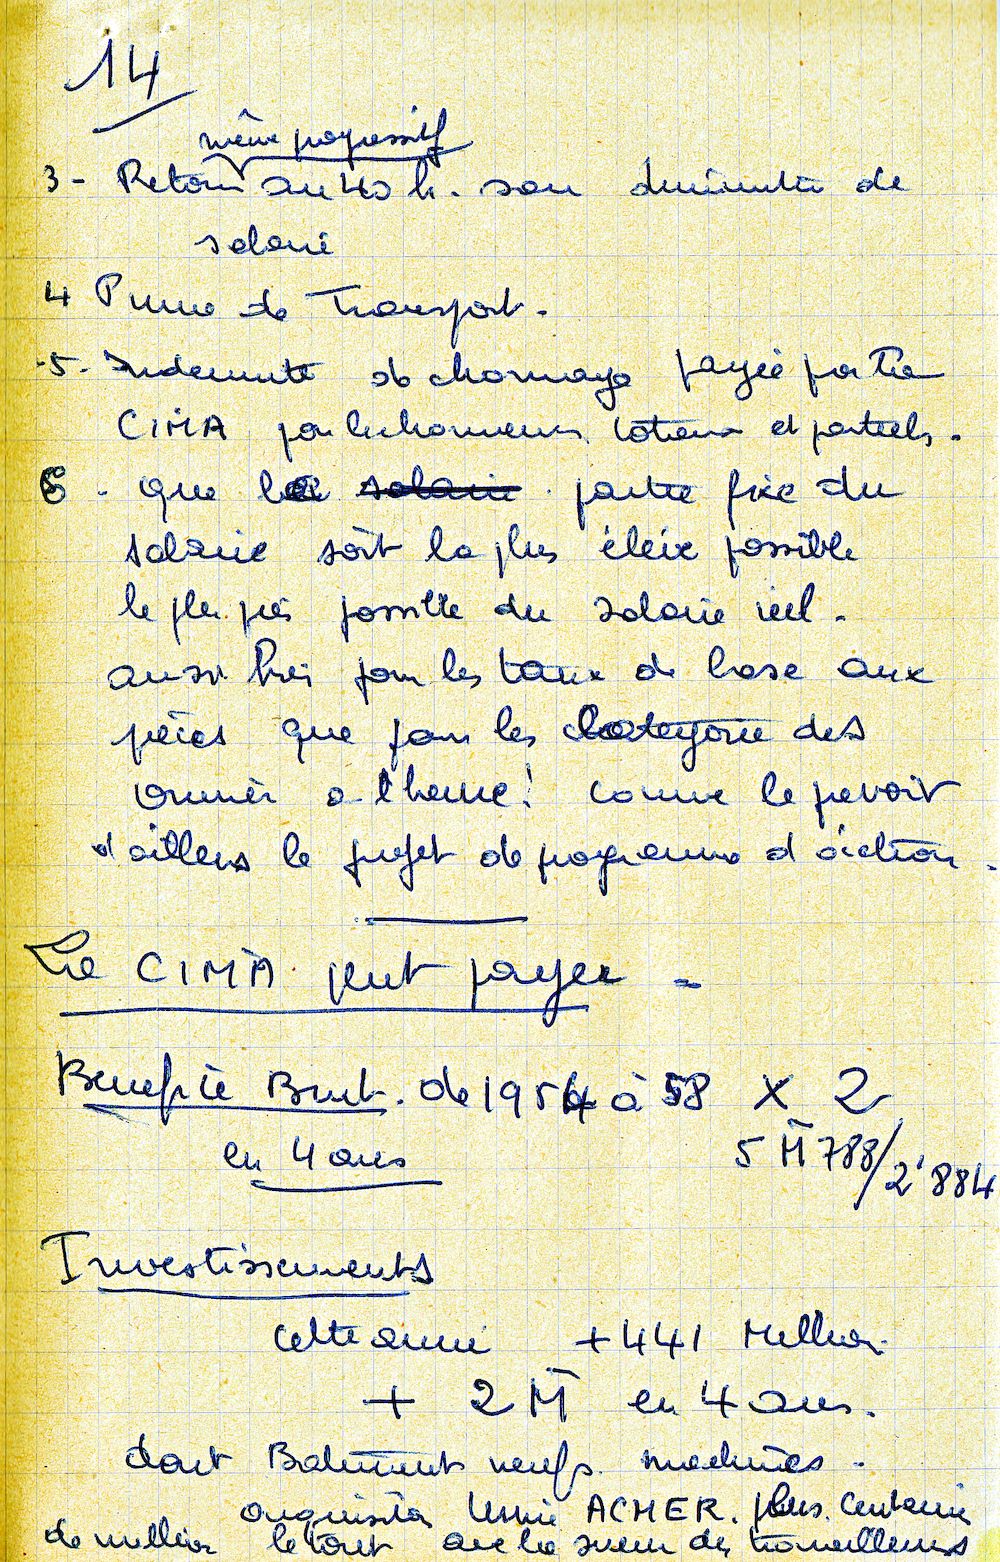 14
même progressif
3 - Retour au 40 h. sans diminution de
salaire
4 Prime de Transport.
-5- Indemnité de chomage payée par la
CIMA pour les chomeurs totaux et partiels.
6 - que la salaire partie fixe du
salaire soit la plus élévée possible
le plus près possible du salaire réel.
aussi bien pour les taux de base aux
pièces que pour les categorie des
ouvrier a l'heure! comme le prevoit
d'ailleurs le projet de programme d'action.
La CIMA peut payer -
Benefice Brut. de 1954 à 58 X 2
en 4 ans 5 M 788/2'884
Investissements
cette année + 441 Million.
+ 2 M en 4 ans.
dont Batiment neufs machines.
acquisition Usine ACHER. plus. Centaine
de million le tout avec la sueur des travailleurs